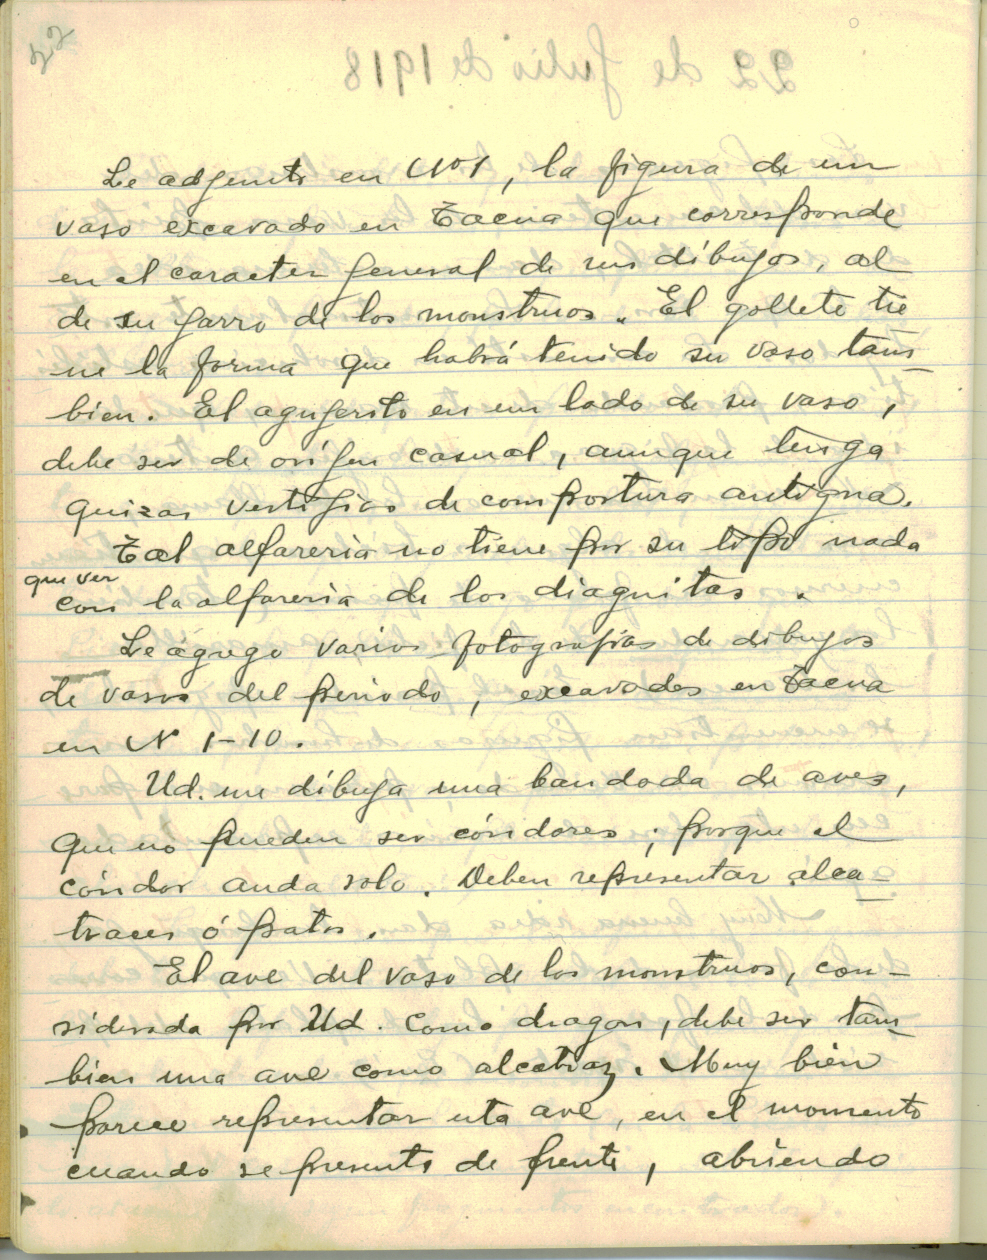 22
22 de Julio de 1918
Le adjunto en Nº 1, la figura de un
vaso excavado en Tacna que corresponde
en el caracter general de sus dibujos, al
de su jarro de los monstruos. El gollete tie
ne la forma que habrá tenido su vaso tam-
bien. El agujerito en un lado de su vaso,
debe ser de orígen casual, aunque tenga
quizas vestigios de compostura antigua.
Tal alfareria no tiene por su tipo nada
que ver
con la alfareria de los diaguitas.
Le agrego varios fotografias de dibujos
de vasos del periodo, excavados en Tacna
en N 1-10.
Ud. me dibuja una bandada de aves,
que no pueden ser cóndores; porque el
cóndor anda solo. Deben representar alca-
traces ó patos.
El ave del vaso de los monstruos, con-
siderada por Ud. como dragon, debe ser tam-
bien una ave como alcatraz. Muy bien
parece representar esta ave, en el momento
cuando se presenta de frente, abriendo